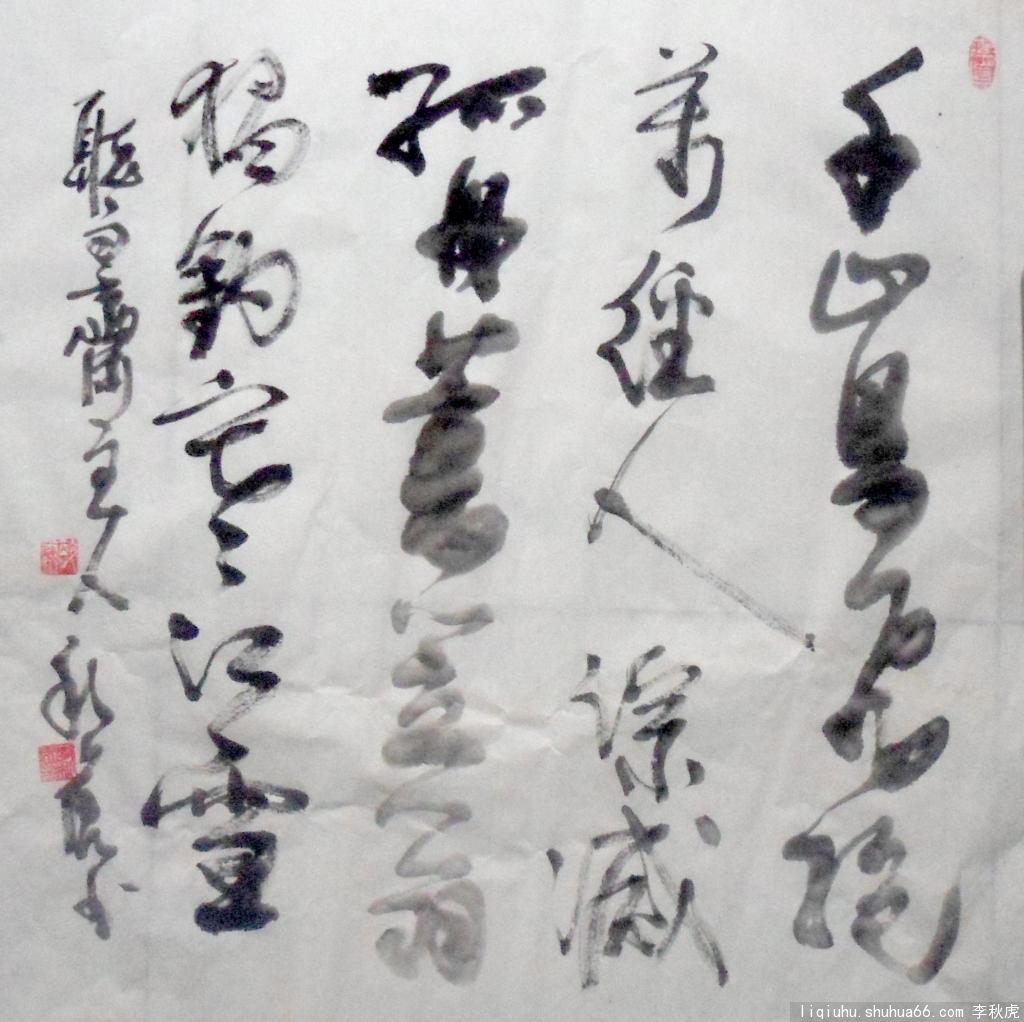 千山鳥飛絕
萬徑人踪滅
孤舟蓑笠翁
獨釣寒江雪
齋主人秋虎
liqiuhu.shuhua66.com 李秋虎